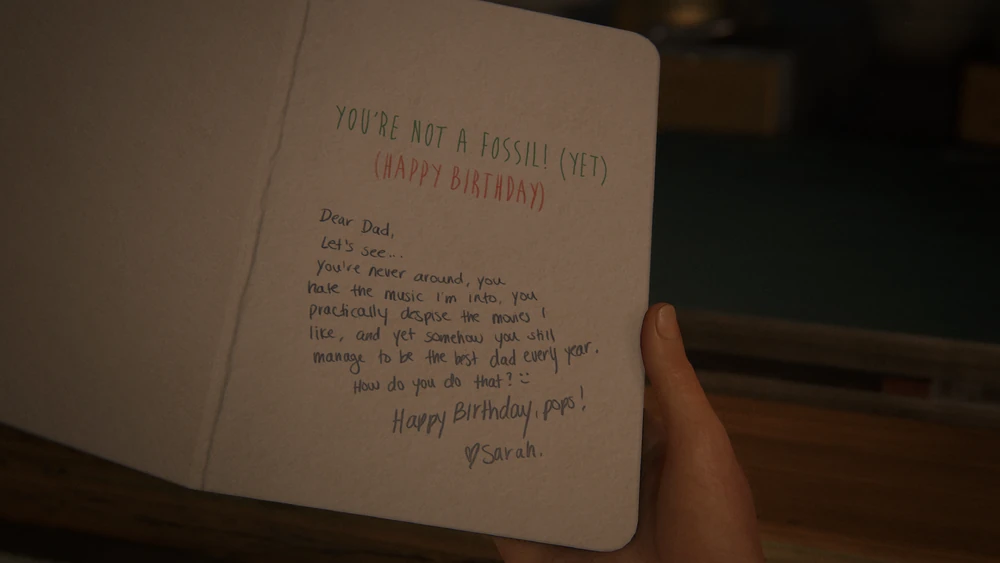 YOU'RE NOT A FOSSIL! (YET)
(HAPPY BIRTHDAY)
Dear Dad,
Let's see...
You're never around, you
hate the music I'm into, you
practically despise the movies I
like, and yet somehow you still
manage to be the best dad every year.
How do you do that? :)
Happy Birthday, pops!
♡Sarah.